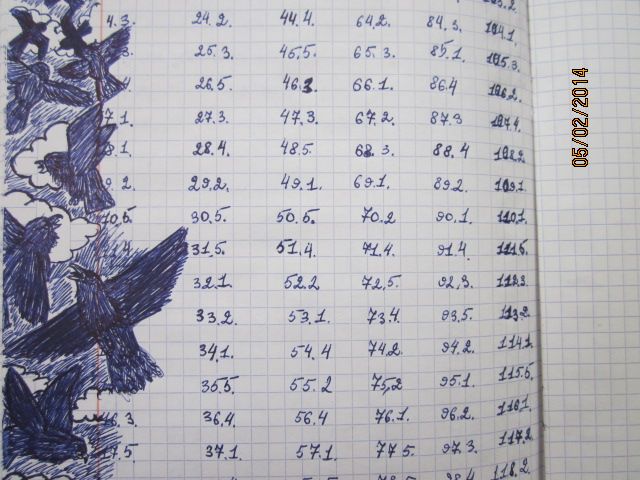 4.3. 24.2. 44.4. 64.2. 84.3. 104.1.
3. 25.3. 45.5. 65.3. 85.1. 105.3.
4 26.5. 46.3 66.1. 86.4 106.2.
7.1 27.3. 47.3. 67.2. 87.3 107.4.
8.1 28.4. 48.5. 68.3. 88.4 108.2
9.2. 29.2. 49.1. 69.1. 89.2. 109.1
10.5. 30.5. 50.5. 70.2 90.1. 110.1.
.4 31.5. 51.4. 71.4. 91.4. 111.5.
32.1. 52.2 72.5. 92.3. 112.3.
33.2. 53.1. 73.4. 93.5. 113.2.
34.1. 54.4 74.2. 94.2. 114.1.
35.5. 55.2 75.2 95.1. 115.5.
16.3. 36.4. 56.4 76.1. 96.2. 116.1.
17.5. 37.1. 57.1. 77.5. 97.3. 117.2.
118.2
05/02/2014